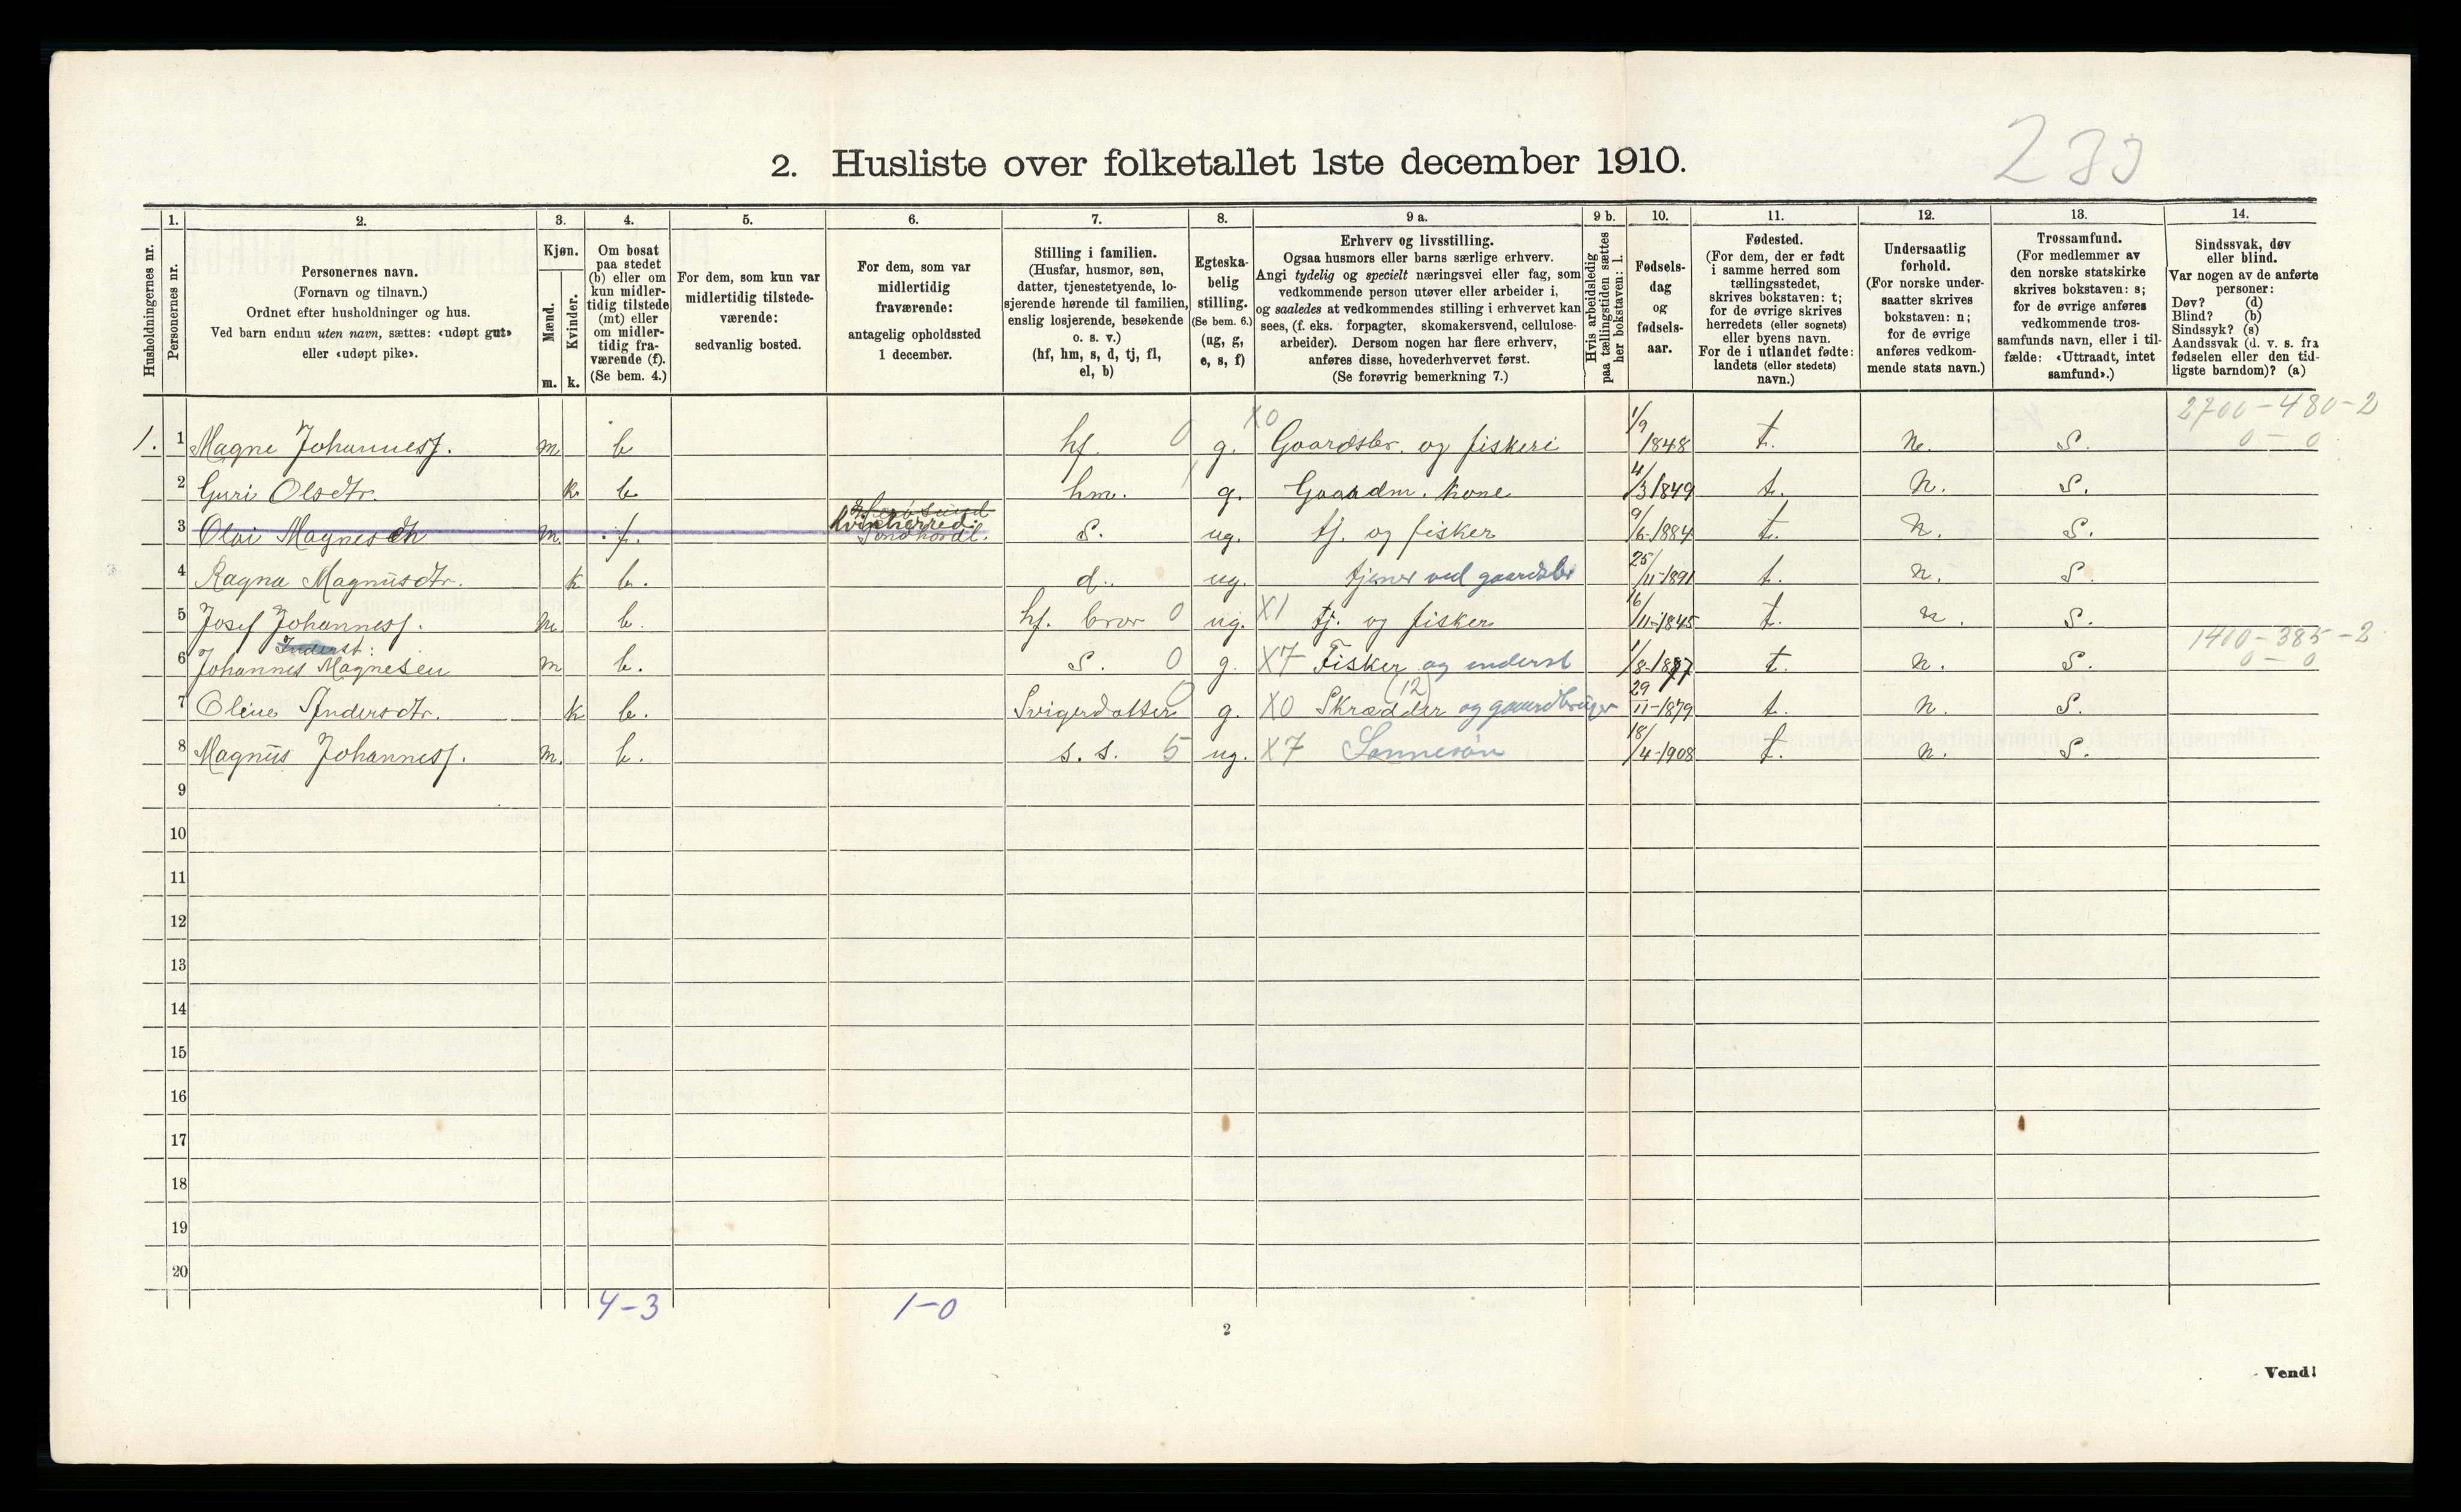 233
2. Husliste over folketallet 1ste december 1910.
Husholdningernes nr.
1. Personernes nr.
2. Personernes navn. (Fornavn og tilnavn.) Ordnet efter husholdninger og hus. Ved barn endnu uten navn, sættes: «udøpt gut» eller «udøpt pike».
3. Kjøn. Mænd. m. Kvinder. k.
4. Om bosat paa stedet (b) eller om kun midlertidig tilstede (mt) eller om midlertidig fraværende (f). (Se bem. 4.)
5. For dem, som kun var midlertidig tilstedeværende: sedvanlig bosted.
6. For dem, som var midlertidig fraværende: antagelig opholdssted 1 december.
7. Stilling i familien. (Husfar, husmor, søn, datter, tjenestetyende, losjerende hørende til familien, enslig losjerende, besøkende o. s. v.) (hf, hm, s, d, tj, fl, el, b)
8. Egteskabelig stilling. (Se bem. 6.) (ug, g, e, s, f)
9 a. Erhverv og livsstilling. Ogsaa husmors eller barns særlige erhverv. Angi tydelig og specielt næringsvei eller fag, som vedkommende person utøver eller arbeider i, og saaledes at vedkommendes stilling i erhvervet kan sees, (f. eks. forpagter, skomakersvend, cellulosearbeider). Dersom nogen har flere erhverv, anføres disse, hovederhvervet først. (Se forøvrig bemerkning 7.)
9 b. Hvis arbeidsledig paa tællingstiden sættes her bokstaven: l.
10. Fødselsdag og fødselsaar.
11. Fødested. (For dem, der er født i samme herred som tællingsstedet, skrives bokstaven: t; for de øvrige skrives herredets (eller sognets) eller byens navn. For de i utlandet fødte: landets (eller stedets) navn.)
12. Undersaatlig forhold. (For norske undersaatter skrives bokstaven: n; for de øvrige anføres vedkommende stats navn.)
13. Trossamfund. (For medlemmer av den norske statskirke skrives bokstaven: s; for de øvrige anføres vedkommende trossamfunds navn, eller i tilfælde: «Uttraadt, intet samfund».)
14. Sindssvak, døv eller blind. Var nogen av de anførte personer: Døv? (d) Blind? (b) Sindssyk? (s) Aandssvak (d. v. s. fra fødselen eller den tidligste barndom)? (a)
1. 1 Magne Johannesf. m. b hf. 0 g. X0 Gaardsbr. og fiskeri 1/9 1848 t. n. S. 2700-480-2 0-0
2 Guri Olsdtr. k. b. hm. 1 g. Gaardm. kone 4/3 1849 t. n. S.
3 Olai Magnes m. f. Kvinherred. Søndhordl. S. ug. tj. og fisker 9/6-1884 t. n. S.
4 Ragna Magnusdtr. k b. d. ug. tjener ved gaardsbr 25/11-1891 t. n. S.
5 Josef Johannesf. m. b. hf. bror 0 ug. X1 tj. og fisker 16/11-1845 t. n. S.
Inderst:
6 Johannes Magnesen m b. S. 0 g. X7 Fisker og inderst 1/8-1877 t. n. S. 1400-385-2 0-0
7 Oline Andersdtr. k b. Svigerdatter 0 g. X0 Skrædder (12) og gaardbruger 29/11-1879 t. n. S.
8 Magnus Johannesf. m. b. s. s. 5 ug. X7 Sønnesøn 18/4-1908 t. n. S.
9
10
11
12
13
14
15
16
17
18
19
20
4-3 1-0
2
Vend!